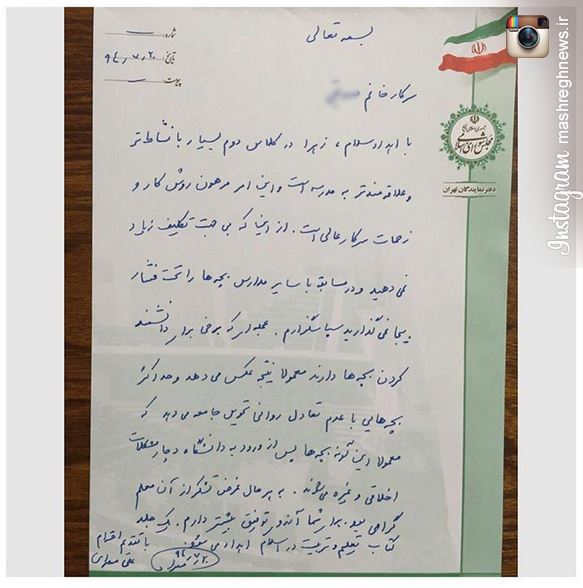 شماره:
تاریخ ۹۴٫۷٫۲۰
پیوست:
بسمه تعالی
جمهوری اسلامی ایران
مجلس شورای اسلامی
دفتر نمایندگان تهران
سرکار خانم
با اهداء سلام، زهرا در کلاس دوم بسیار با نشاط‌تر
و علاقه‌مندتر به مدرسه است و این امر مرهون روش کار و
زحمات سرکار عالی است. از اینکه بی جهت تکلیف زیاد
نمی دهید و در مسابقه با سایر مدارس بچه‌ها را تحت فشار
بیجا نمی گذارید سپاسگزارم. عجله‌ای که برخی برای دانشمند
کردن بچه‌ها دارند معمولاً نتیجه عکس می دهد و حداکثر
بچه‌هایی با عدم تعادل روانی تحویل جامعه می دهد که
معمولاً این گونه بچه‌ها پس از ورود به دانشگاه دچار مشکلات
اخلاقی و غیره می شوند. به هر حال غرض تشکر از آن معلم
گرامی بود. برای شما آرزوی توفیق بیشتر دارم. یک جلد
کتاب تعلیم و تربیت در اسلام اهداء می شود.
با تقدیم احترام
علی مطهری
۹۴/۷/۲۰
Instagram
mashreghnews.ir